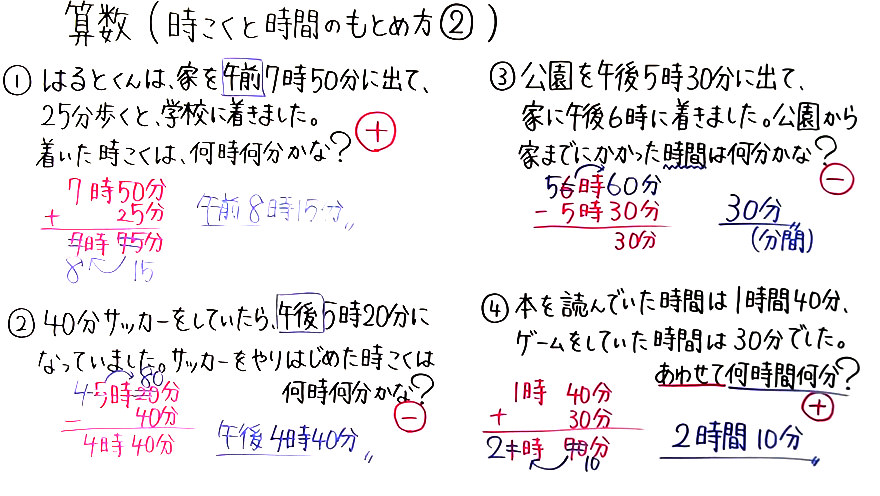 算数(時こくと時間のもとめ方②)
①はるとくんは、家を午前7時50分に出て、
25分歩くと、学校に着きました。
着いた時こくは、何時何分かな?
+
7時50分
+ 25分
7時75分
8 15
午前8時15分
②40分サッカーをしていたら、午後5時20分に
なっていました。サッカーをやりはじめた時こくは
何時何分かな?
−
80
4 5時20分
− 40分
4時40分
午後4時40分
③公園を午後5時30分に出て、
家に午後6時に着きました。公園から
家までにかかった時間は何分かな?
−
5 6時60分
− 5時30分
30分
30分
(分間)
④本を読んでいた時間は1時間40分、
ゲームをしていた時間は30分でした。
あわせて何時間何分?
+
1時 40分
+ 30分
2 1時 70分
10
2時間10分